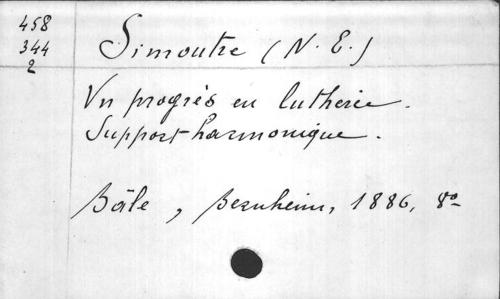 458
344
2
Simoutre (N. E.)
Un progrès en lutherie.
Support harmonique.
Bâle, Bernheim, 1886, 8º